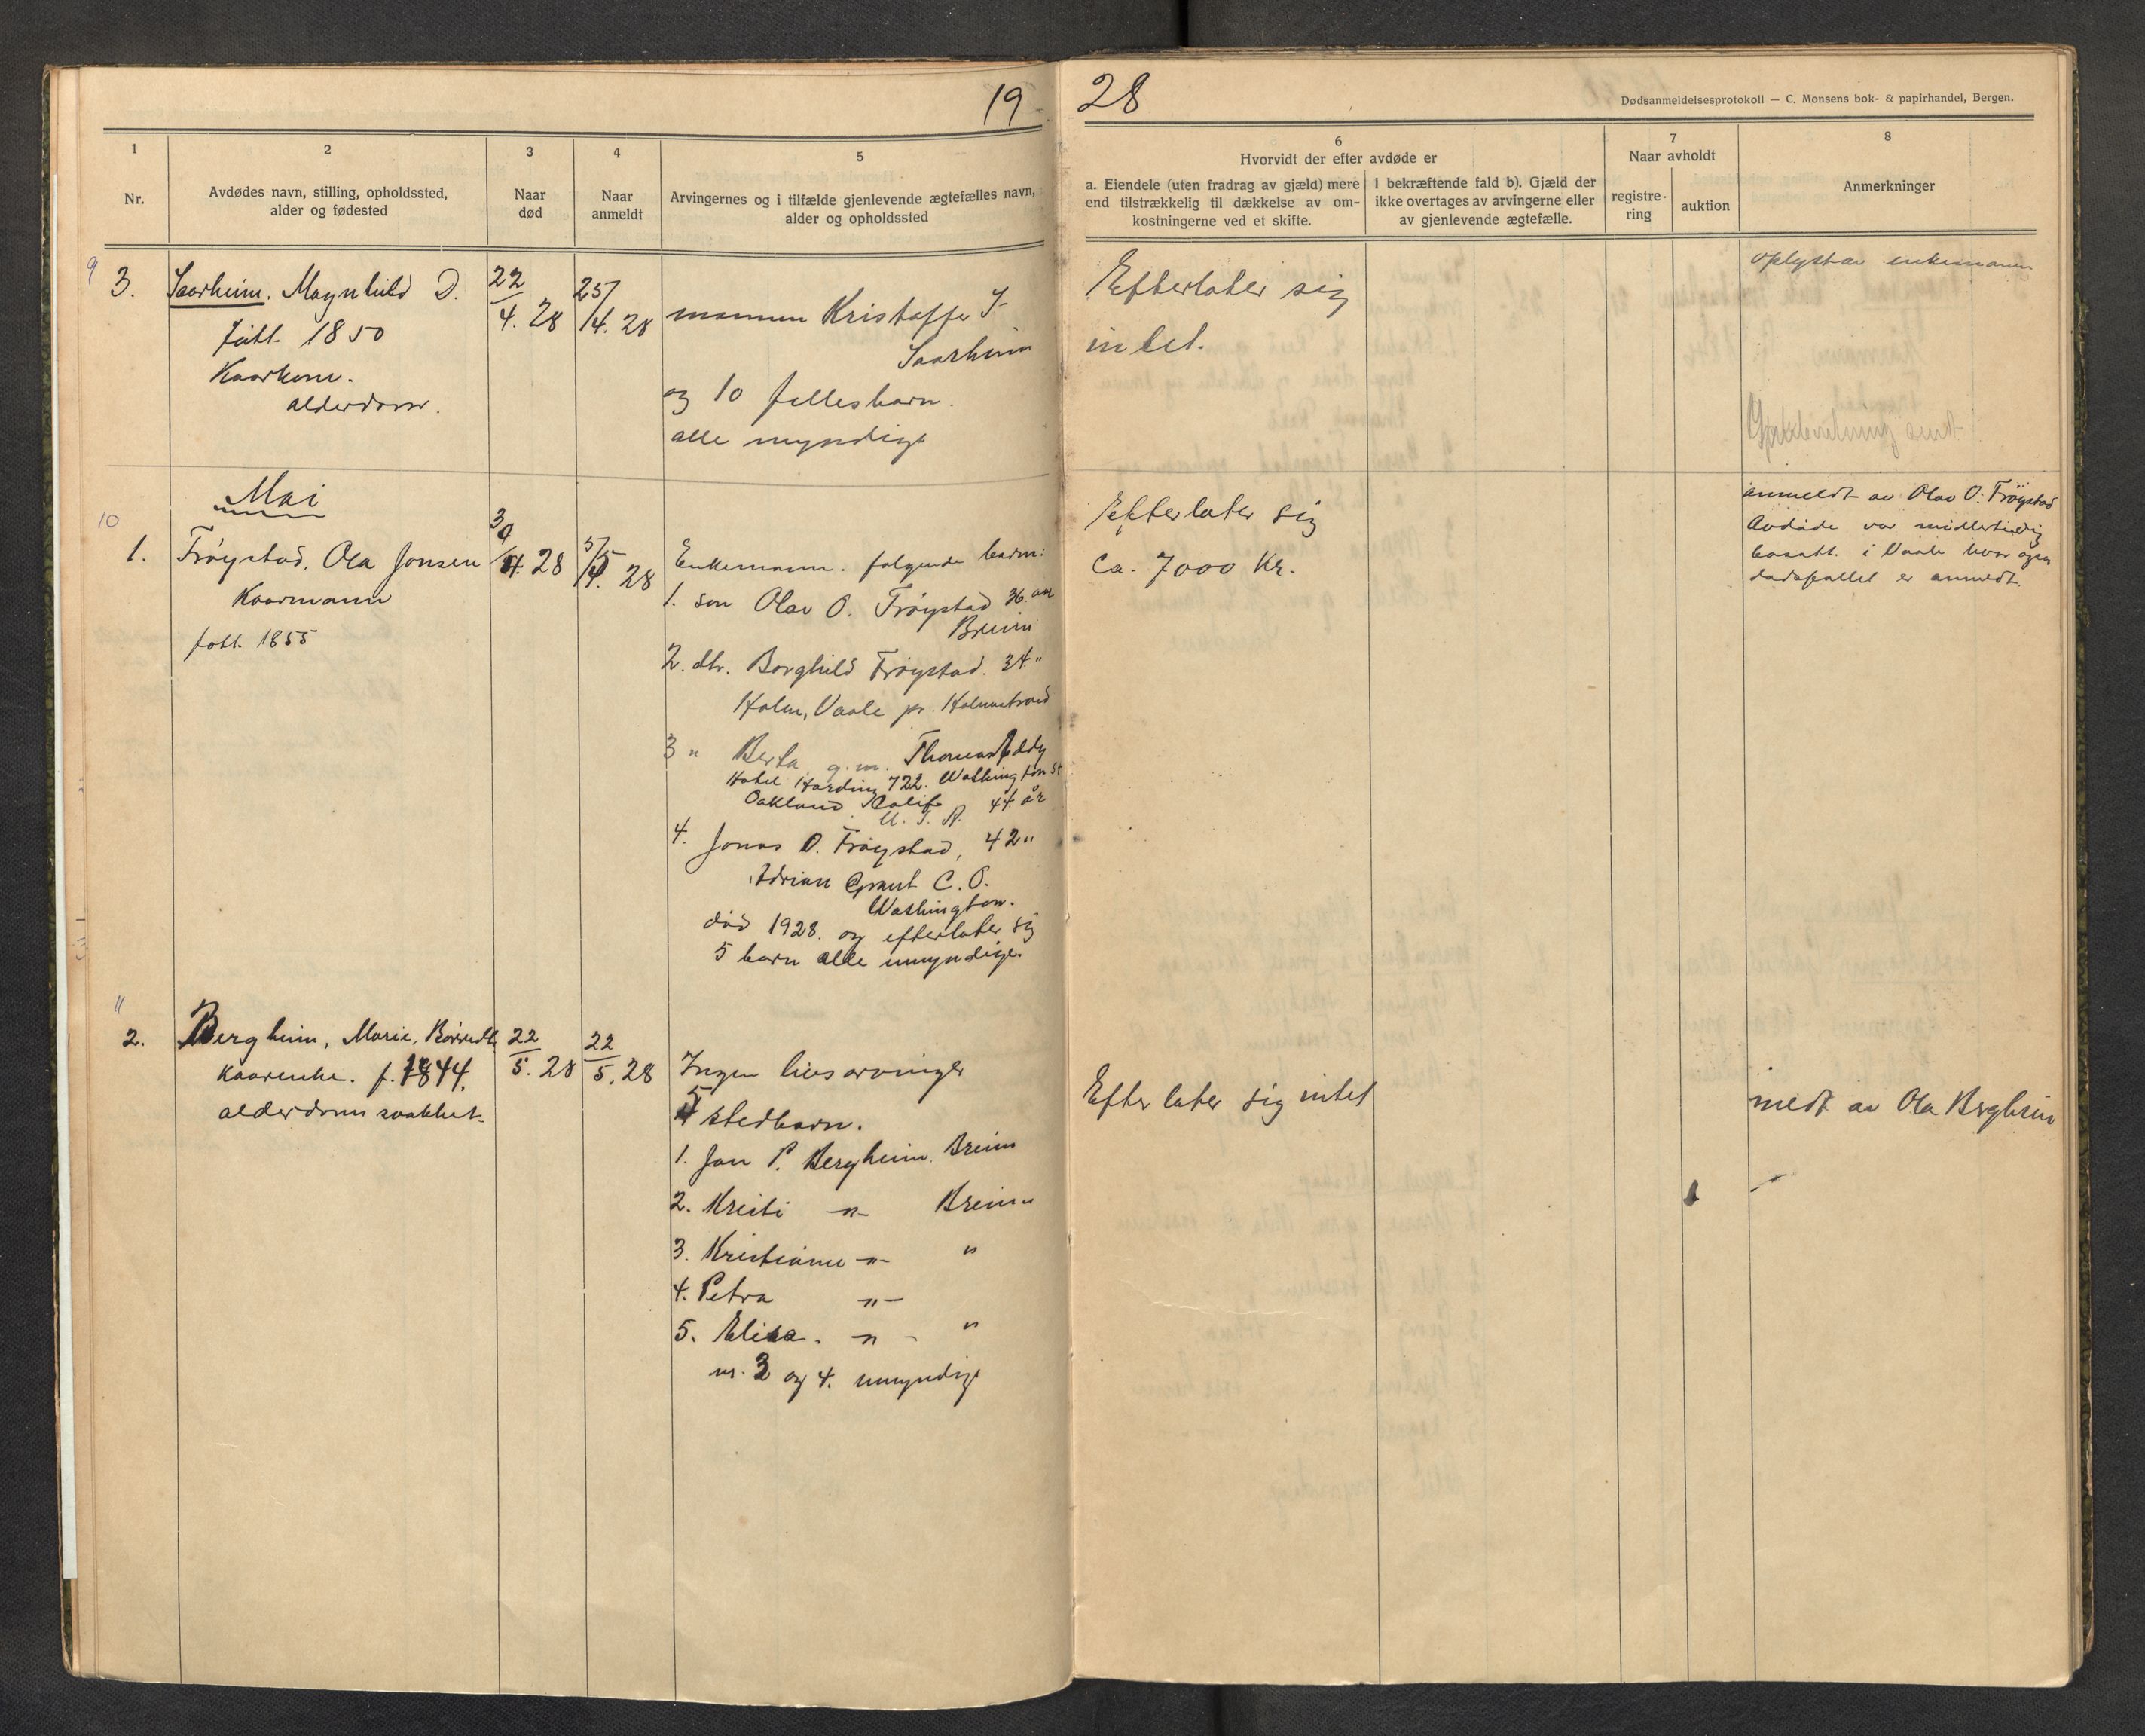 19
28
Dødsanmeldelsesprotokoll — C. Monsens bok- & papirhandel, Bergen.
1
Nr.
2
Avdødes navn, stilling, opholdssted,
alder og fødested
3
Naar
død
4
Naar
anmeldt
5
Arvingernes og i tilfælde gjenlevende ægtefælles navn,
alder og opholdssted
6
Hvorvidt der efter avdøde er
a. Eiendele (uten fradrag av gjæld) mere
end tilstrækkelig til dækkelse av om-
kostningerne ved et skifte.
I bekræftende fald b). Gjæld der
ikke overtages av arvingerne eller
av gjenlevende ægtefælle.
7
Naar avholdt
registre-
ring
auktion
8
Anmerkninger
9
3.
Saarheim. Magnhild D.
født. 1850
Kaarkone.
alderdom.
22/4. 28
25/4. 28
mannen Kristoffer J.
Saarheim
og 10 fellesbarn.
alle myndige
Efterlater sig
intet.
oplyst av enkemannen
sendt
Mai
10
1.
Frøystad, Ola Jonsen
Kaarmann
født. 1855
30/4. 28
5/5 28
Enkemann. følgende barn:
1. søn Olav O. Frøystad 36 aar
Breim
2. dtr. Borghild Frøystad. 34 "
Holm, Vaale pr. Holmestrand
3 " Berta g.m. Thomas Eddy
Hotel Harding 722. Washington St
Oakland Calif 44 år
U. S. A.
4. Jonas O. Frøystad, 42 "
Adrian Grant C. O.
Washington.
død 1928. og efterlater sig
5 barn alle umyndige
Efterlater sig
ca. 7000 Kr.
anmeldt av Olav O. Frøystad
Avdøde var midlertidig
bosatt. i Vaale hvor ogsaa
dødsfallet er anmeldt.
11
2.
Bergheim, Marie,
kaarenke. f. 1844.
alderdomsvakhet.
22/5. 28
22/5. 28
Ingen livsarvinger
5 stedbarn.
1. Jon P. Bergheim. Breim
2. Kristi -"- Breim
3. Kristiane -"- "
4. Petra -"-
5. Elisa. -"- "
nr. 3 og 4. umyndige
Efterlater sig intet
meldt av Ola Bergheim